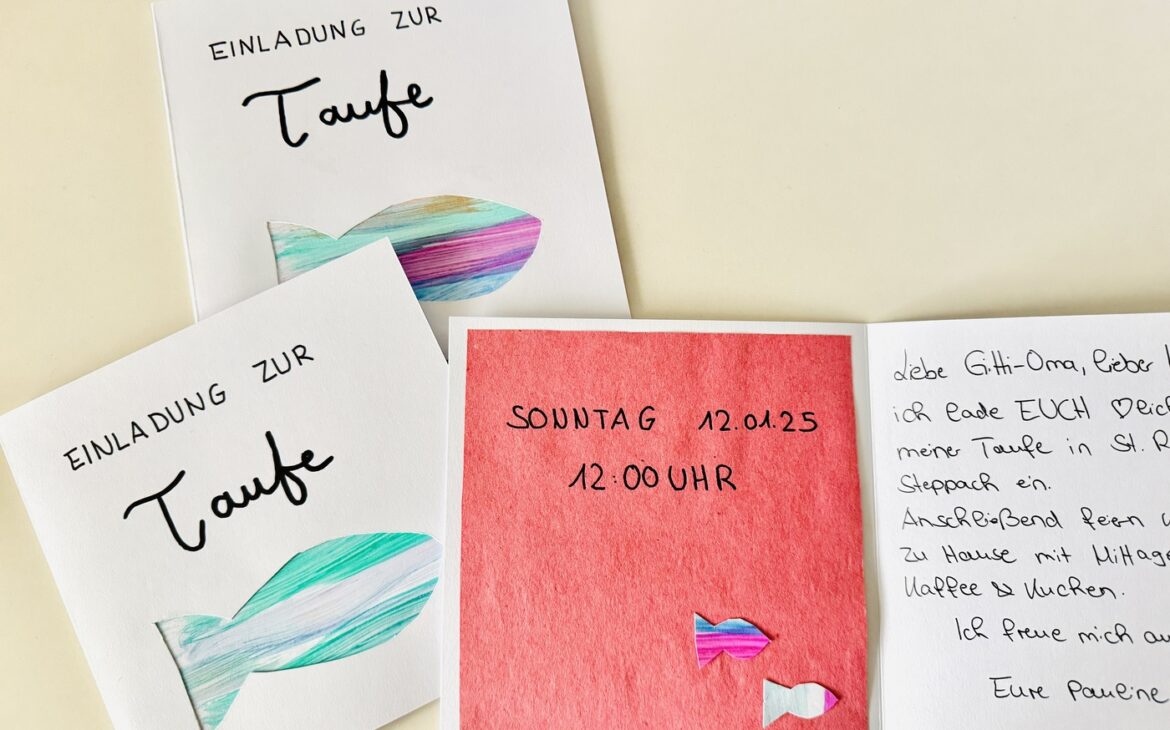 EINLADUNG ZUR
Taufe
EINLADUNG ZUR
Taufe
SONNTAG 12.01.25
12:00 UHR
Liebe Gitti-Oma, lieber
ich lade EUCH ♡lich
meiner Taufe in St. R
Steppach ein.
Anschließend feiern
zu Hause mit Mittage
Kaffee & Kuchen.
Ich freue mich au
Eure Pauline